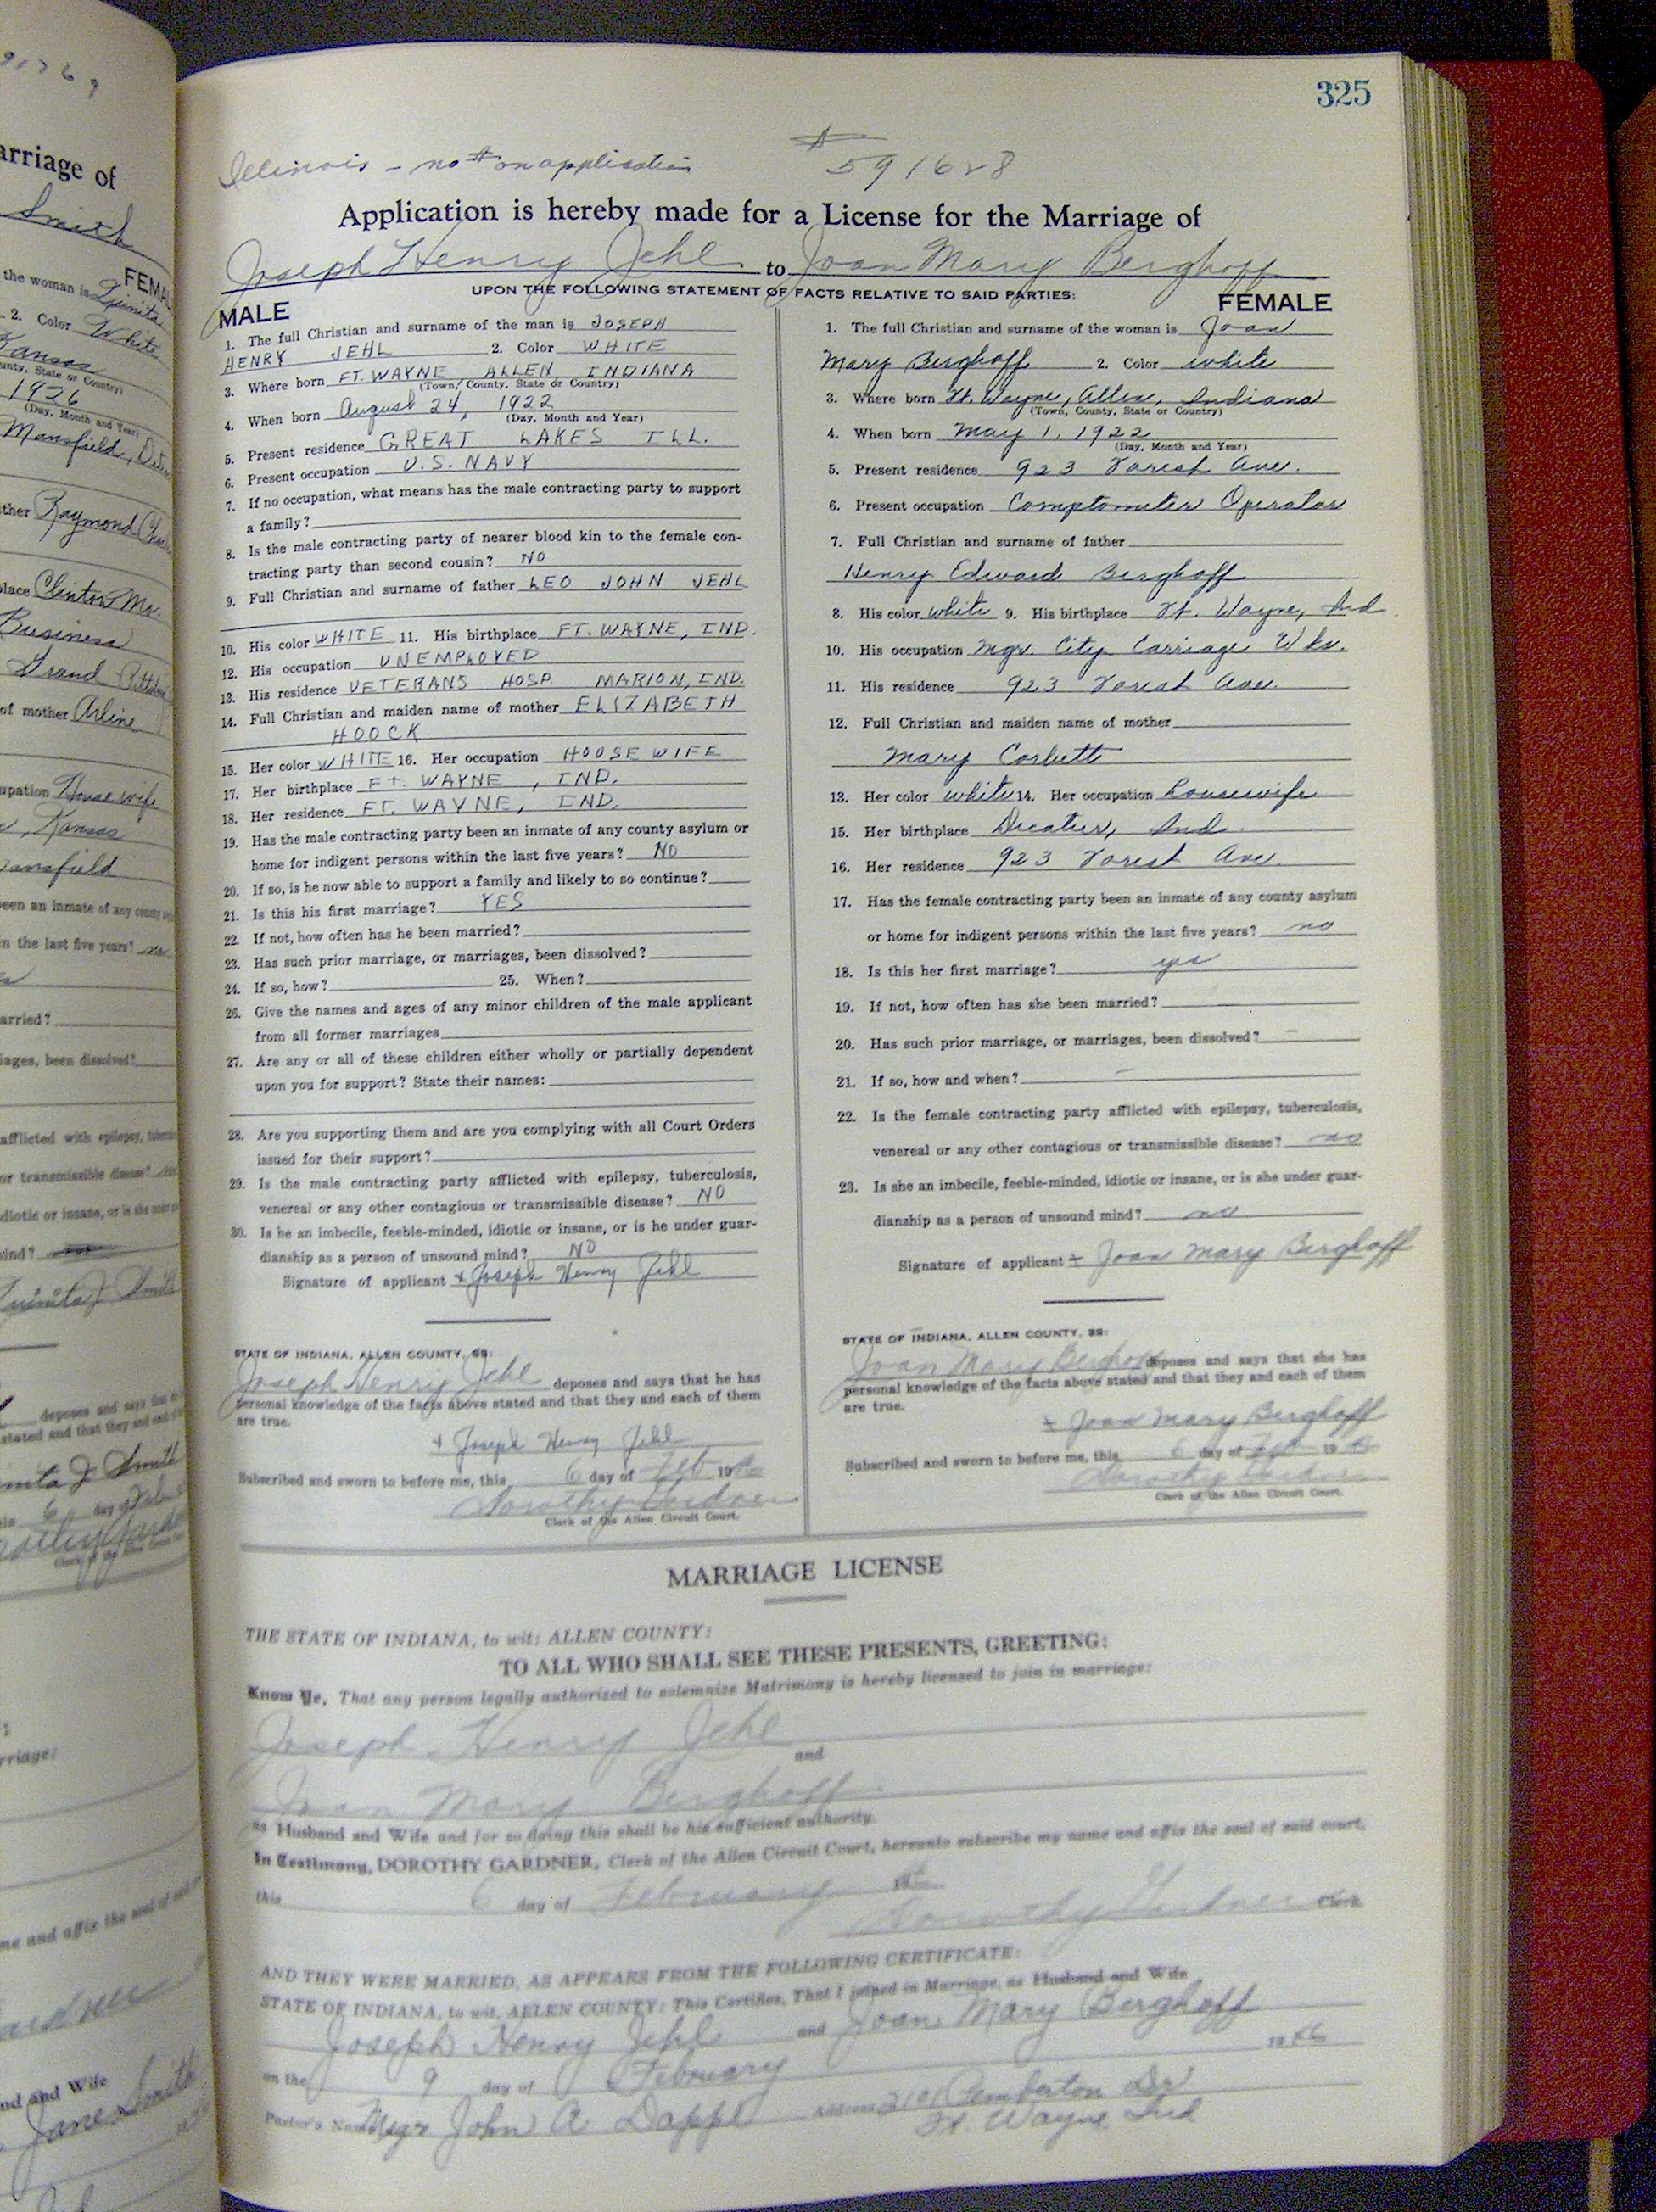 325
Illinois - no # on application
# 591628
Application is hereby made for a License for the Marriage of
Joseph Henry Jehl to Joan Mary Berghoff
UPON THE FOLLOWING STATEMENT OF FACTS RELATIVE TO SAID PARTIES:
MALE
1. The full Christian and surname of the man is JOSEPH
HENRY JEHL 2. Color WHITE
3. Where born FT. WAYNE ALLEN, INDIANA
(Town, County, State or Country)
4. When born August 24, 1922
(Day, Month and Year)
5. Present residence GREAT LAKES ILL.
6. Present occupation U.S. NAVY
7. If no occupation, what means has the male contracting party to support
a family?
8. Is the male contracting party of nearer blood kin to the female con-
tracting party than second cousin? NO
9. Full Christian and surname of father LEO JOHN JEHL
10. His color WHITE 11. His birthplace FT. WAYNE, IND.
12. His occupation UNEMPLOYED
13. His residence VETERANS HOSP. MARION, IND.
14. Full Christian and maiden name of mother ELIZABETH
HOOCK
15. Her color WHITE 16. Her occupation HOUSE WIFE
17. Her birthplace FT. WAYNE, IND.
18. Her residence FT. WAYNE, IND.
19. Has the male contracting party been an inmate of any county asylum or
home for indigent persons within the last five years? NO
20. If so, is he now able to support a family and likely to so continue?
21. Is this his first marriage? YES
22. If not, how often has he been married?
23. Has such prior marriage, or marriages, been dissolved?
24. If so, how? 25. When?
26. Give the names and ages of any minor children of the male applicant
from all former marriages
27. Are any or all of these children either wholly or partially dependent
upon you for support? State their names:
28. Are you supporting them and are you complying with all Court Orders
issued for their support?
29. Is the male contracting party afflicted with epilepsy, tuberculosis,
venereal or any other contagious or transmissible disease? NO
30. Is he an imbecile, feeble-minded, idiotic or insane, or is he under guar-
dianship as a person of unsound mind? NO
Signature of applicant x Joseph Henry Jehl
STATE OF INDIANA, ALLEN COUNTY, SS:
Joseph Henry Jehl deposes and says that he has
personal knowledge of the facts above stated and that they and each of them
are true.
x Joseph Henry Jehl
Subscribed and sworn to before me, this 6 day of Feb 19
Dorothy Gardner
Clerk of the Allen Circuit Court.
FEMALE
1. The full Christian and surname of the woman is Joan
Mary Berghoff 2. Color white
3. Where born Ft. Wayne, Allen, Indiana
(Town, County, State or Country)
4. When born May 1, 1922
(Day, Month and Year)
5. Present residence 923 Forest Ave.
6. Present occupation Comptometer Operator
7. Full Christian and surname of father
Henry Edward Berghoff
8. His color white 9. His birthplace Ft. Wayne, Ind.
10. His occupation Mgr. City Carriage Wks.
11. His residence 923 Forest Ave.
12. Full Christian and maiden name of mother
Mary Corbett
13. Her color white 14. Her occupation housewife
15. Her birthplace Decatur, Ind.
16. Her residence 923 Forest Ave.
17. Has the female contracting party been an inmate of any county asylum
or home for indigent persons within the last five years? no
18. Is this her first marriage? yes
19. If not, how often has she been married?
20. Has such prior marriage, or marriages, been dissolved? -
21. If so, how and when? -
22. Is the female contracting party afflicted with epilepsy, tuberculosis,
venereal or any other contagious or transmissible disease? no
23. Is she an imbecile, feeble-minded, idiotic or insane, or is she under guar-
dianship as a person of unsound mind? no
Signature of applicant x Joan Mary Berghoff
STATE OF INDIANA, ALLEN COUNTY, SS:
Joan Mary Berghoff deposes and says that she has
personal knowledge of the facts above stated and that they and each of them
are true.
x Joan Mary Berghoff
Subscribed and sworn to before me, this 6 day of Feb 19
Dorothy Gardner
Clerk of the Allen Circuit Court.
MARRIAGE LICENSE
THE STATE OF INDIANA, to wit: ALLEN COUNTY:
TO ALL WHO SHALL SEE THESE PRESENTS, GREETING:
Know Ye, That any person legally authorized to solemnize Matrimony is hereby licensed to join in marriage:
Joseph Henry Jehl
and
Joan Mary Berghoff
as Husband and Wife and for so doing this shall be his sufficient authority.
In Testimony, DOROTHY GARDNER, Clerk of the Allen Circuit Court, hereunto subscribe my name and affix the seal of said court,
this 6 day of February 19
Dorothy Gardner Clerk.
AND THEY WERE MARRIED, AS APPEARS FROM THE FOLLOWING CERTIFICATE:
STATE OF INDIANA, to wit, ALLEN COUNTY: This Certifies, That I joined in Marriage, as Husband and Wife
Joseph Henry Jehl and Joan Mary Berghoff
on the 9 day of February 1946
Pastor's Name Msgr John A Dapp Address 2101 Pemberton Dr
Ft. Wayne Ind